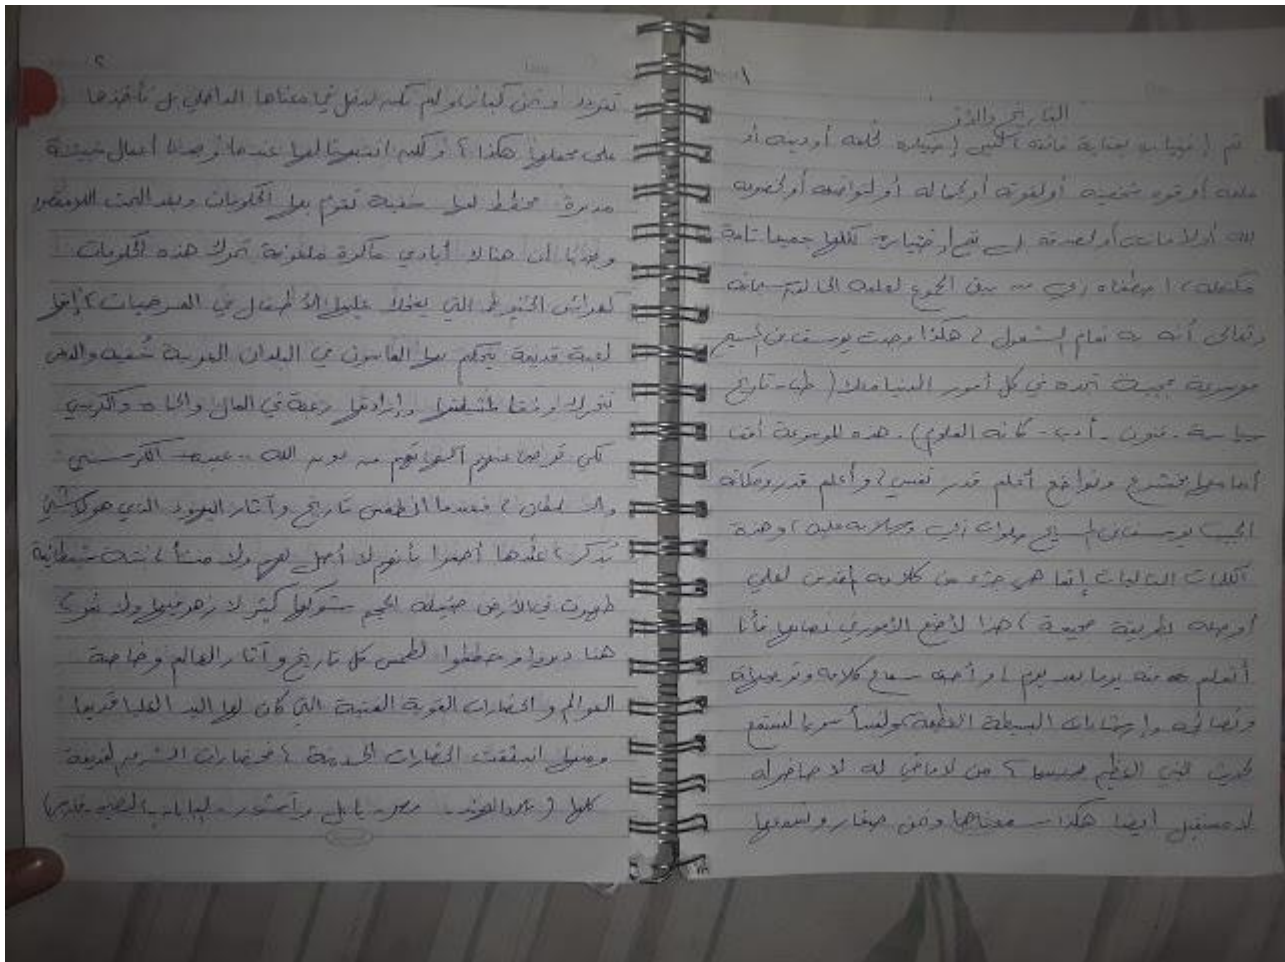 ١
التاريخ والذ
تم إختياره بعناية فائقة أكثير إختياره لخلقه أو دينه أو
علمه أو قوة شخصيته أو لقوته أو لجماله أو لتواضعه أو لخضوعه
لله أو لأمانته أو لصدقه تم إختياره لكلها جميعا تامة
مكتملة، اصطفاه ربي من بين الجموع لعلمه الخالق سبحانه
وتعالى أنه به تمام ، هكذا وجدت يوسف بن المسيح
موسوعة عجيبة تجده في كل أمور الدنيا ملك (طب - تاريخ
سياسة - فنون - أدب - كافة العلوم). هذه الموسوعة أقف
أمامها بخشوع وتواضع أعلم قدر نفسي وأعلم قدر ومكانة
الحبيب يوسف بن المسيح صلوات ربي وسلامه عليه، وهذه
الكلمات التاليات إنما هي جزء من كلامه أقدس لعلي
أوصله بطريقة صحيحة، هذا لأضع الأمور في نصابها فأنا
أتعلم منه يوما بعد يوم وأحب سماع كلامه
ونصائحه وإرشاداته البسيطة العظيمة ولنبدأ سويا لنستمع
لحديث النبي العظيم ، من لا ماضي له لا حاضر له
لا مستقبل أيضا هكذا سمعناها ونحن صغار وسمعناها
٢
تتردد ونحن كبار ولم نكن لندخل في معناها الداخلي بل نأخذها
على محملها هكذا، أو لكن انتبهنا لها عندما أعمال خبيثة
مدبرة مخطط لها خفية تقوم بها الحكومات وبعد البحث
وجدنا أن هناك أيادي ماكرة ملعونة تحرك هذه الحكومات
كعرائس الخيوط التي يضحك عليها الأطفال في المسرحيات، إنها
لعبة قديمة يتحكم بها الماسون في البلدان العربية كدمية والدمى
تتحرك وفقا وإرادتها رغبة في المال والجاه والكرسي
لكي ترضى عنهم آلهتهم من دون الله .. عبدة الكرسي
والسلطان، فعندما انطمس تاريخ وآثار اليهود الذي هو كشيء
يُذكر، عندها أحسوا بأنهم لا أصل لهم ولا منشأ، نبتة شيطانية
ظهرت في الأرض ضئيلة الحجم شوكها كثير لا زهر فيها ولا ثمر،
هنا دبروا وخططوا لطمس كل تاريخ وآثار العالم وخاصة
العوالم والحضارات القوية العتية التي كان لها اليد العليا قديما
ومنها انبثقت الحضارات الحديثة، فحضارات الشرق القديمة
كلها (الهند - مصر - بابل وآشور - اليابان - الصين - فارس)